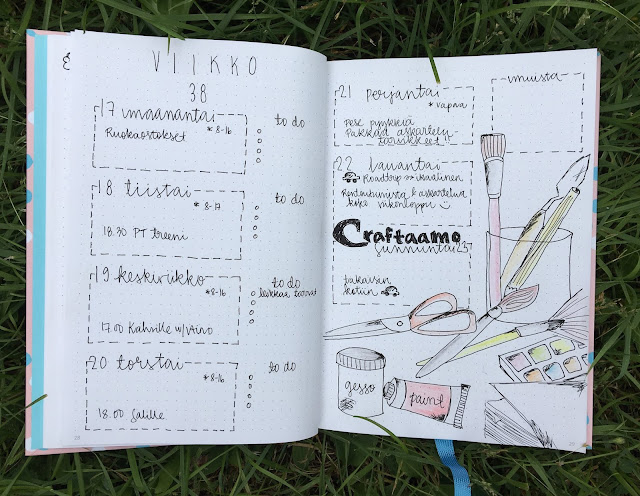 VIIKKO
38
17 maanantai
* 8-16
Ruokaostokset
to do
18 tiistai
* 8-17
18.30 PT treeni
to do
19 keskiviikko
* 8-16
17.00 Kahville w/Aino
to do
leikkaa tarrat
20 torstai
* 8-16
18.00 Salille
to do
21 perjantai
* vapaa
Pese pyykkiä
Pakkaa askartelu-
tarvikkeet!
muista
22 lauantai
Roadtrip Ikaalinen
Rentoutumista & askartelua
koko viikonloppu
Craftaamo
sunnuntai 23
takaisin
kotiin
gesso
paint